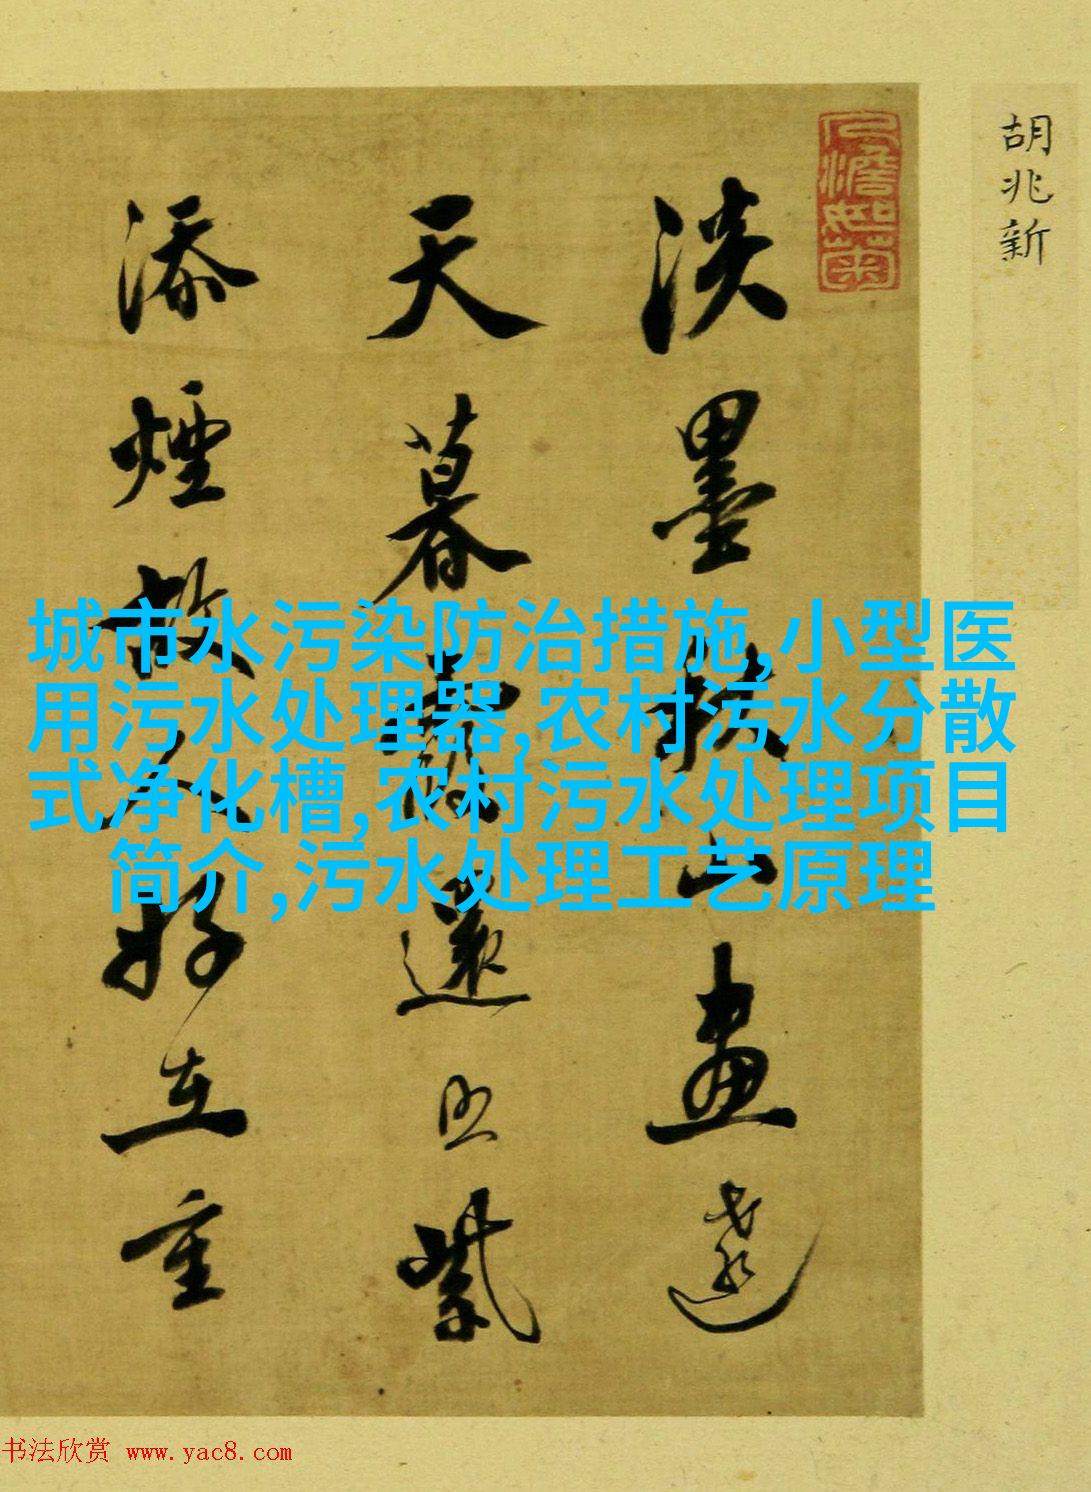 胡兆新
人澹如菊
淡墨秋山畫遠
天暮霞還照紫
添煙故人好在重
城市水污染防治措施,小型医
用污水处理器,农村污水分散
式净化槽,农村污水处理项目
简介,污水处理工艺原理
书法欣赏 www.yac8.com